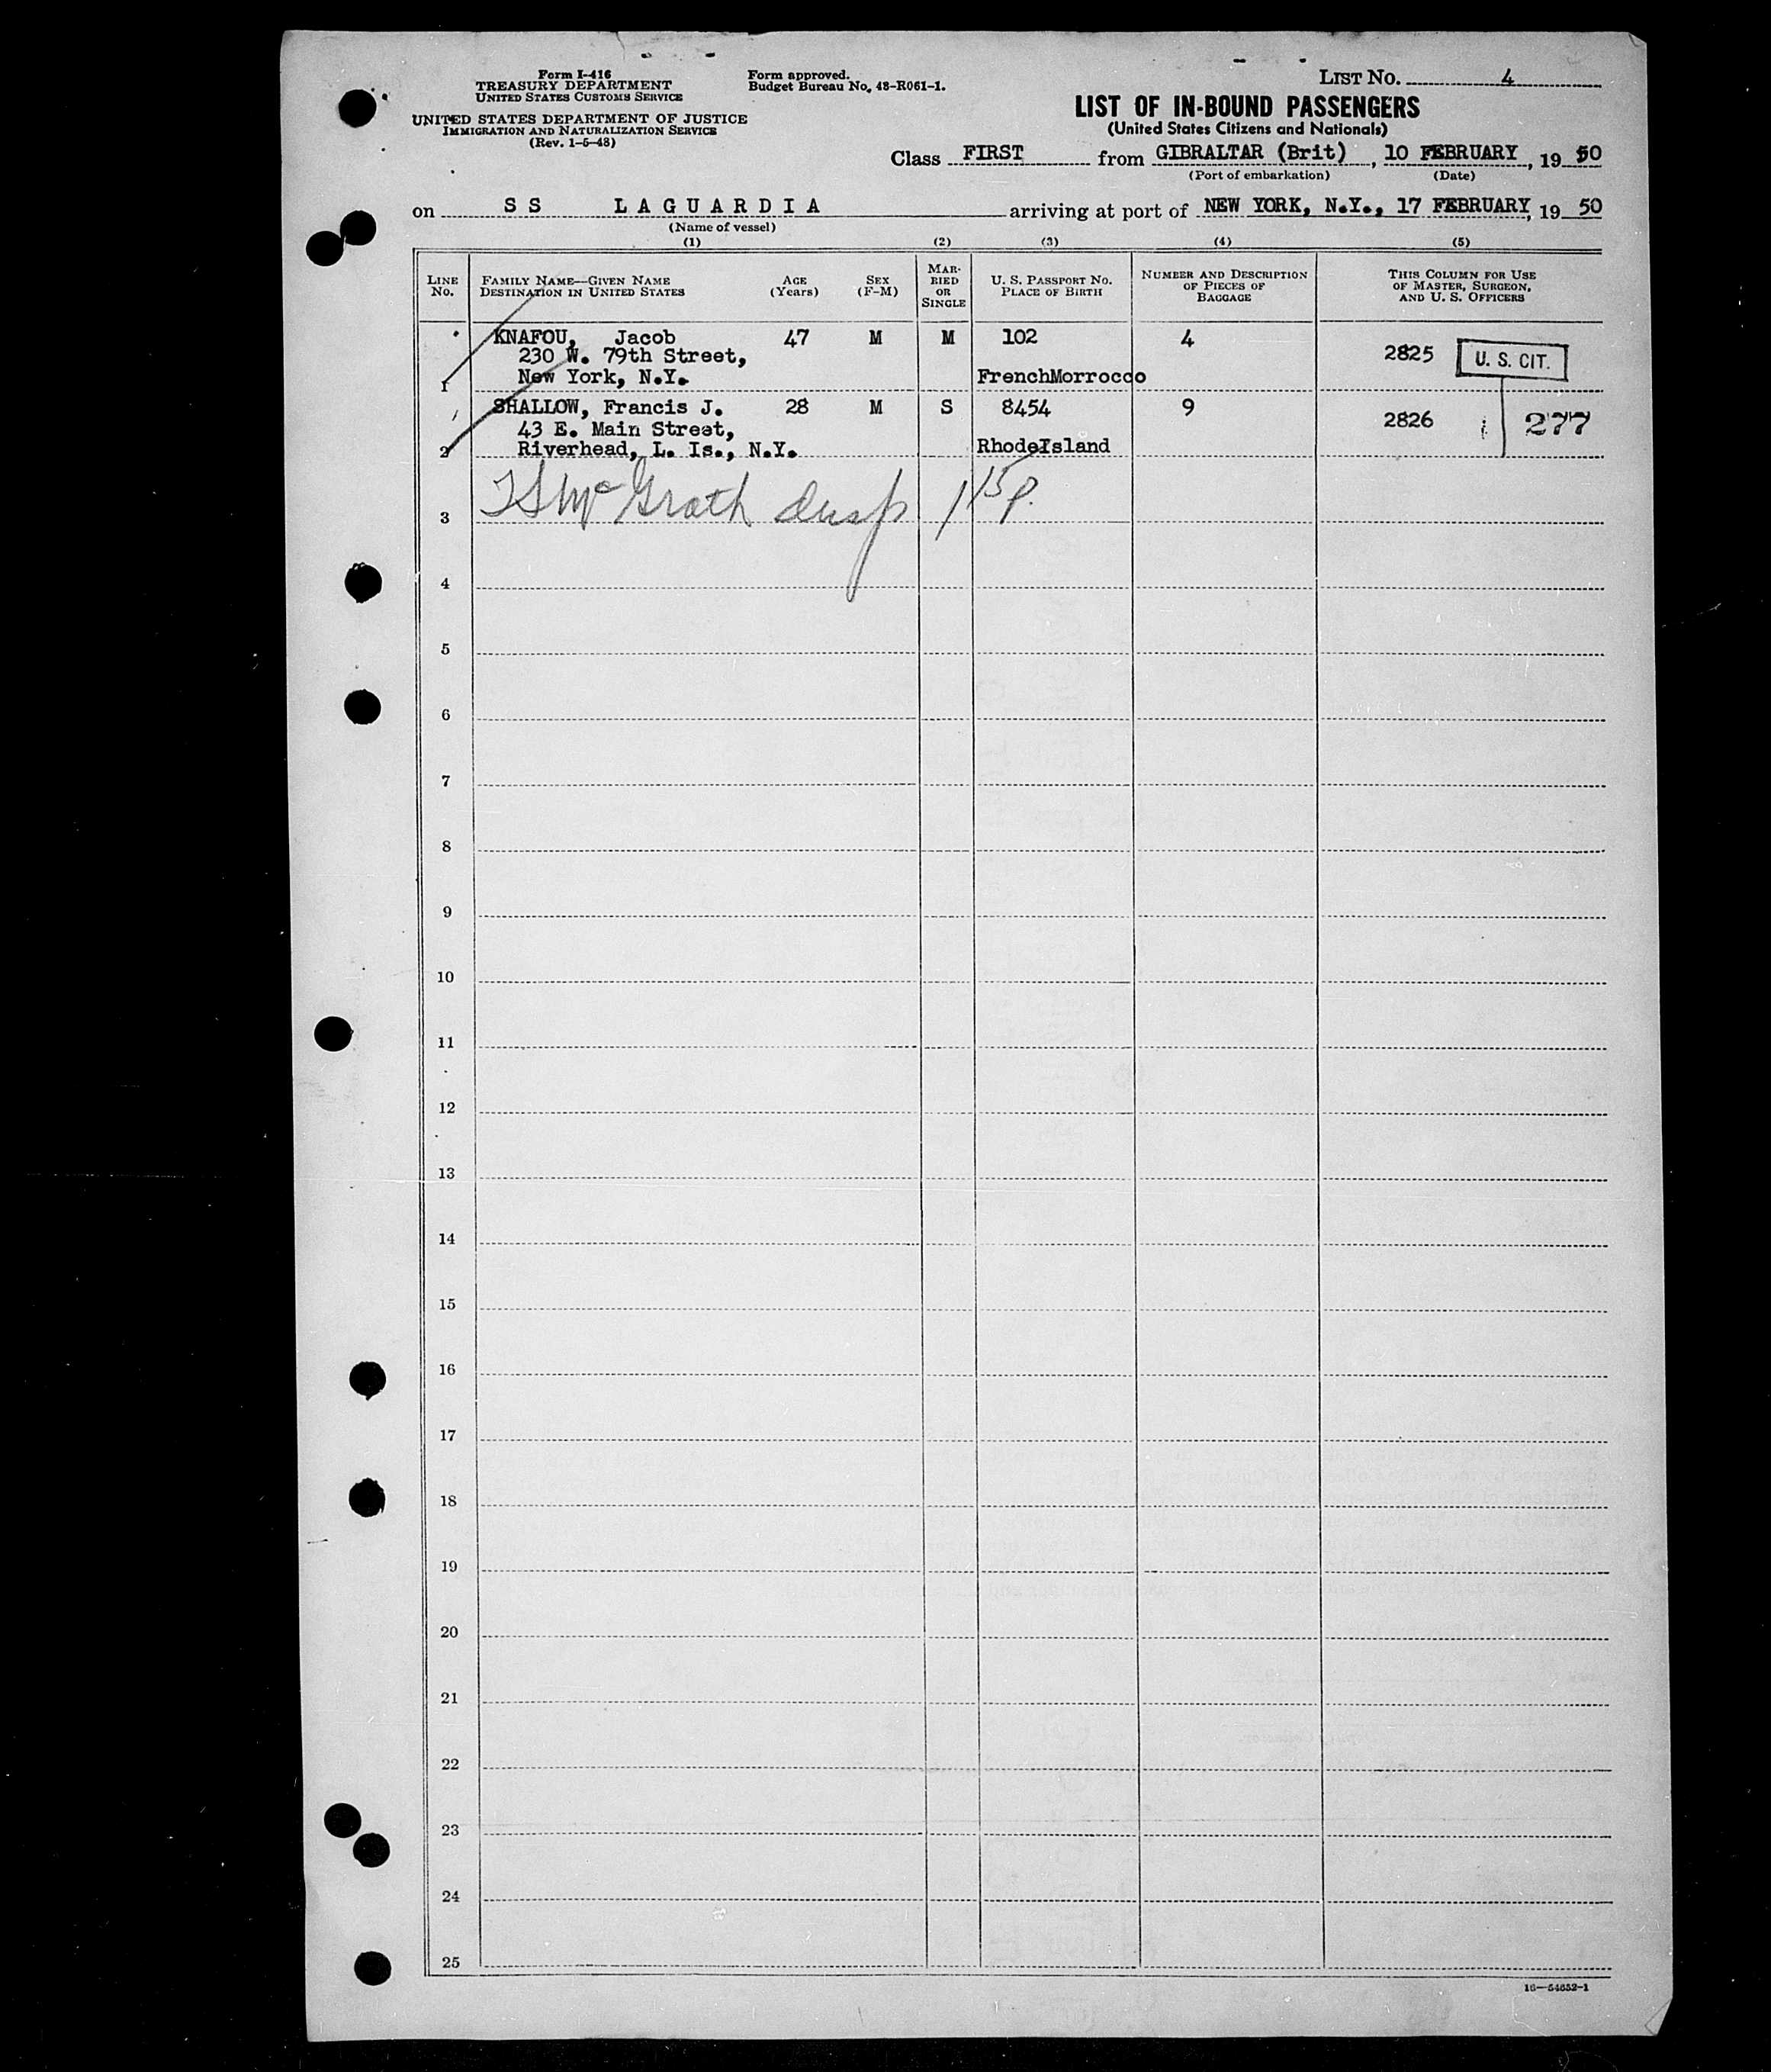 Form I-416
TREASURY DEPARTMENT
UNITED STATES CUSTOMS SERVICE
UNITED STATES DEPARTMENT OF JUSTICE
IMMIGRATION AND NATURALIZATION SERVICE
(Rev. 1-5-48)
Form approved.
Budget Bureau No. 48-R061-1.
LIST NO. 4
LIST OF IN-BOUND PASSENGERS
(United States Citizens and Nationals)
Class FIRST from GIBRALTAR (Brit), 10 FEBRUARY, 19 50
(Port of embarkation) (Date)
on SS LAGUARDIA arriving at port of NEW YORK, N.Y., 17 FEBRUARY, 19 50
(Name of vessel)
(1) (2) (3) (4) (5)
LINE NO.
FAMILY NAME—GIVEN NAME
DESTINATION IN UNITED STATES
AGE
(Years)
SEX
(F-M)
MAR-
RIED
OR
SINGLE
U. S. PASSPORT NO.
PLACE OF BIRTH
NUMBER AND DESCRIPTION
OF PIECES OF
BAGGAGE
THIS COLUMN FOR USE
OF MASTER, SURGEON,
AND U. S. OFFICERS
KNAFOU, Jacob 47 M M 102 4 2825 U. S. CIT.
230 W. 79th Street,
New York, N.Y. FrenchMorrocco
1
SHALLOW, Francis J. 28 M S 8454 9 2826 277
43 E. Main Street,
Riverhead, L. Is., N.Y. RhodeIsland
2
McGrath
3
4
5
6
7
8
9
10
11
12
13
14
15
16
17
18
19
20
21
22
23
24
25
16—54652-1